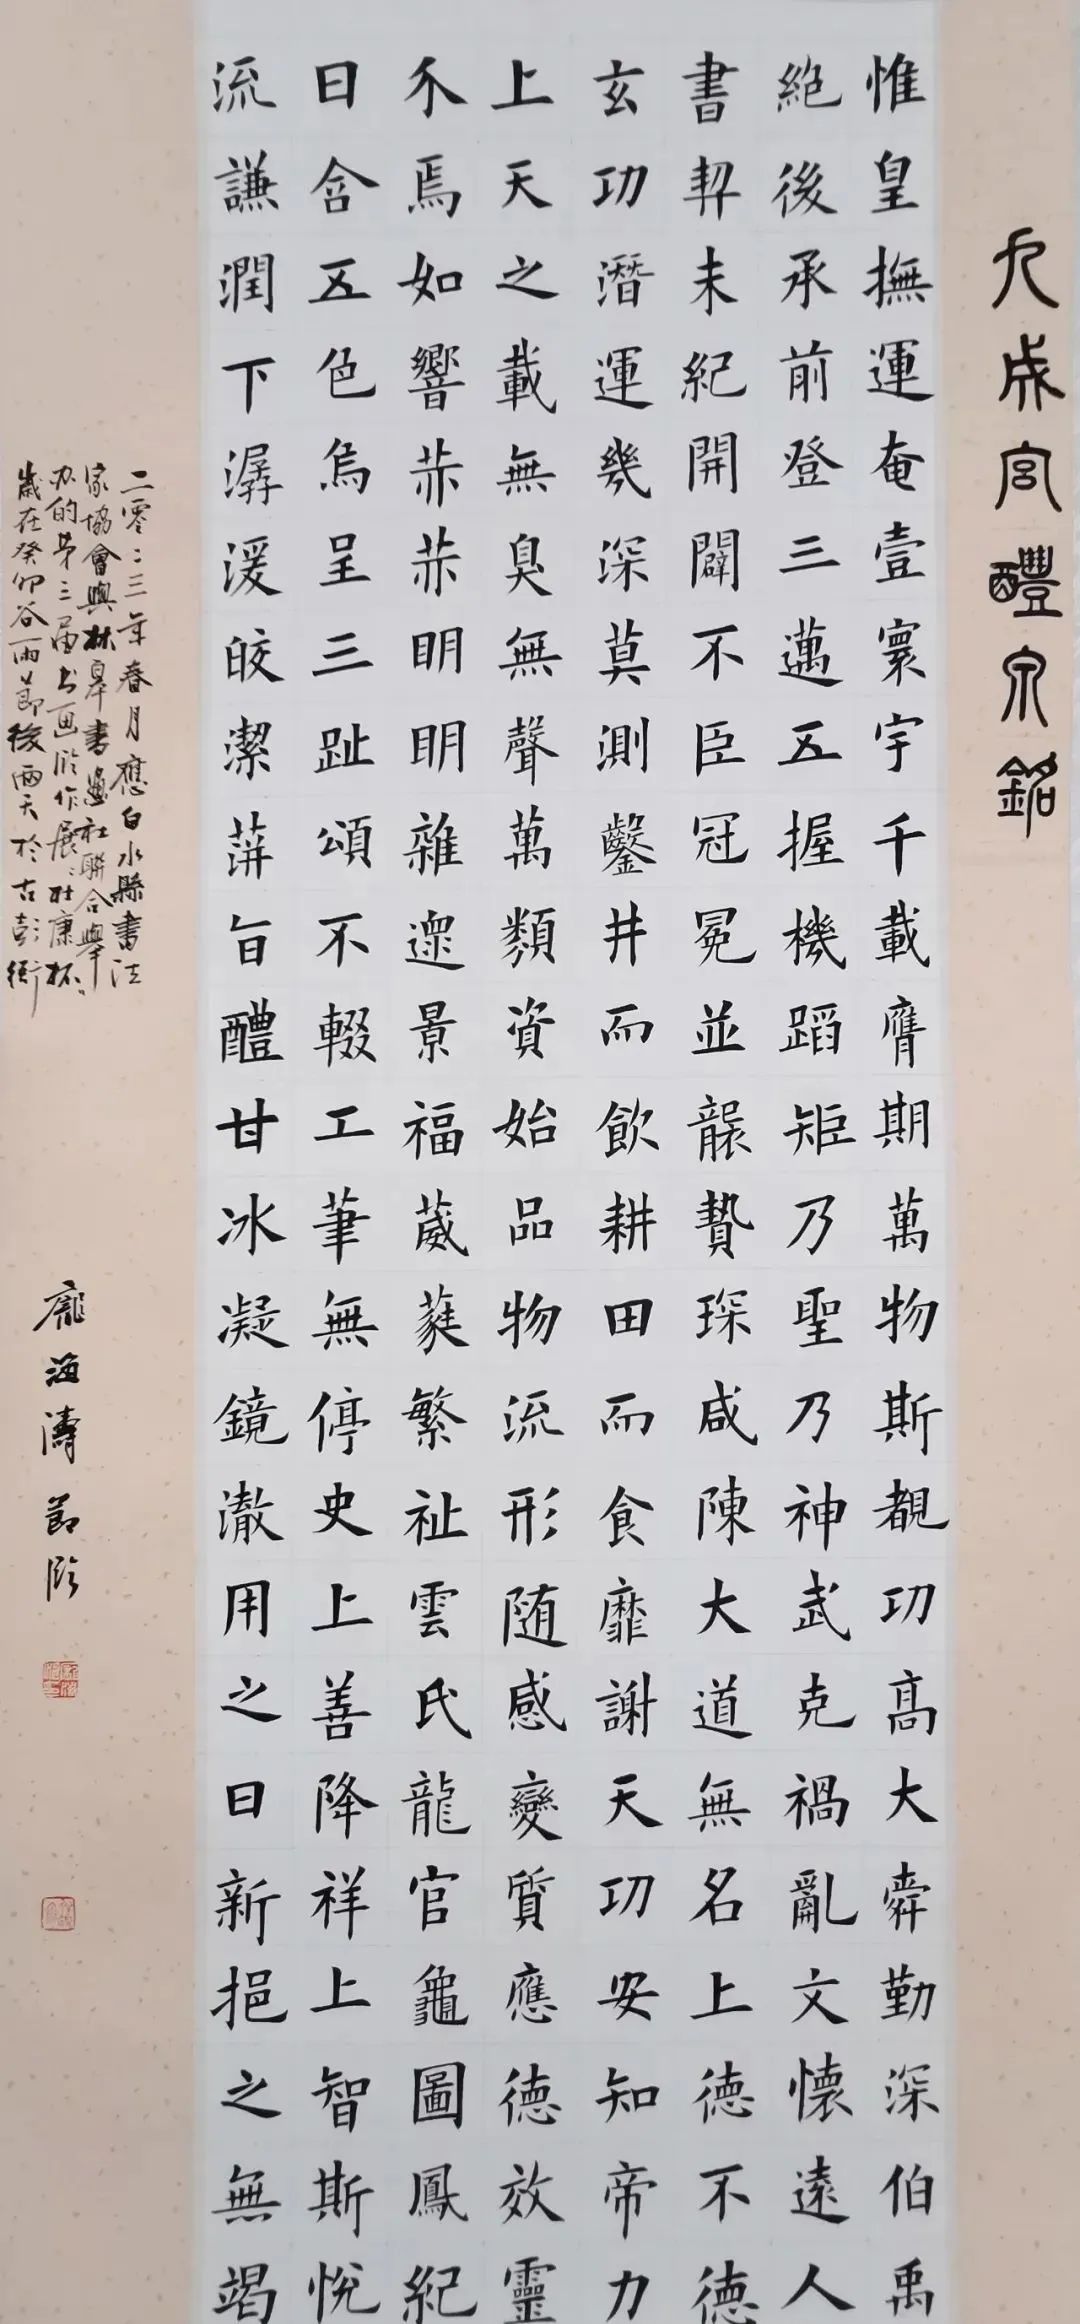 九成宮醴泉銘
惟皇撫運奄壹寰宇千載膺期萬物斯覩功高大舜勤深伯禹
絶後承前登三邁五握機蹈矩乃聖乃神武克禍亂文懷遠人
書契未紀開闢不臣冠冕並襲贄琛咸陳大道無名上德不德
玄功潛運幾深莫測鑿井而飲耕田而食靡謝天功安知帝力
上天之載無臭無聲萬類資始品物流形随感變質應德效靈
介焉如響赫赫明明雜遝景福葳蕤繁祉雲氏龍官龜圖鳳紀
日含五色烏呈三趾頌不輟工筆無停史上善降祥上智斯悅
流謙潤下潺湲皎潔蓱旨醴甘冰凝鏡澈用之日新挹之無竭
二零二三年春月應白水縣書法
家協會與林皋書畫社聯合舉
办的第三届书画臨作展社康杯
歲在癸卯谷雨節後兩天於古彭衙
龐海濤節臨